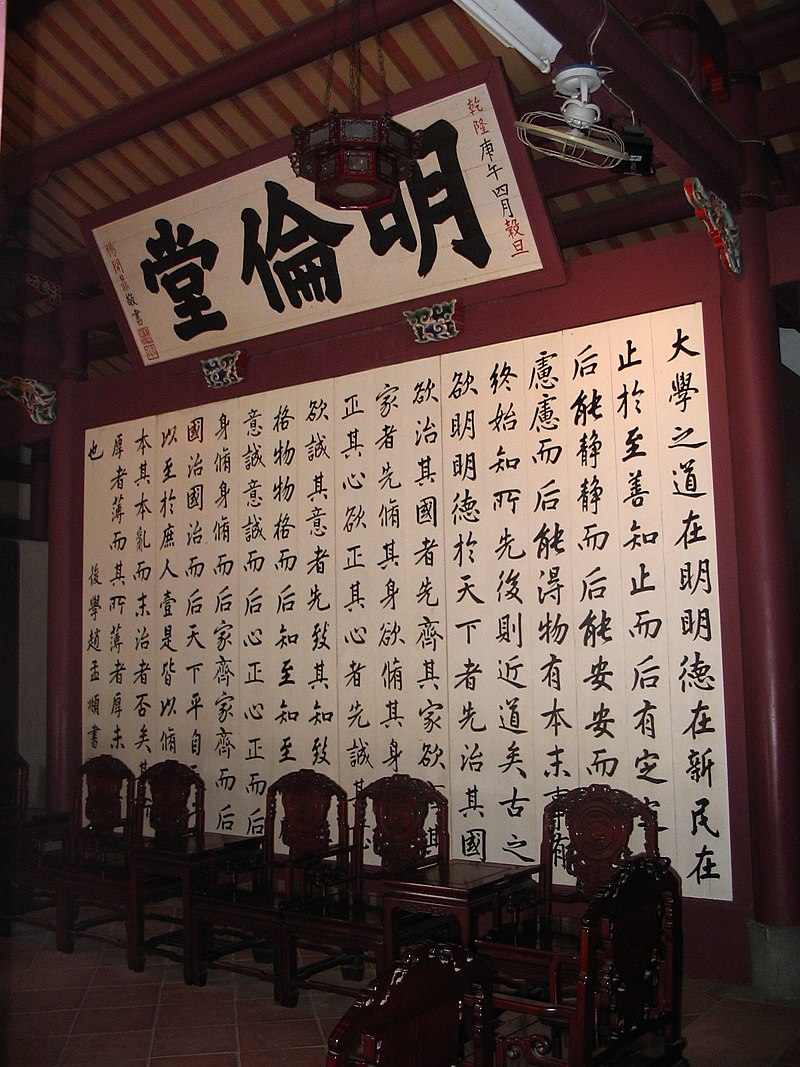 乾隆庚午四月穀旦
明倫堂
楊開鼎敬書
大學之道在明明德在新民在
止於至善知止而后有定定
后能靜靜而后能安安而
慮慮而后能得物有本末事有
終始知所先後則近道矣古之
欲明明德於天下者先治其國
欲治其國者先齊其家欲其
家者先脩其身欲脩其身
正其心欲正其心者先誠其
欲誠其意者先致其知致
格物物格而后知至知至
意誠意誠而后心正心正而后
身脩身脩而后家齊家齊而后
國治國治而后天下平自
以至於庶人壹是皆以脩
本其本亂而末治者否矣其
厚者薄而其所薄者厚未
也
後學趙孟頫書